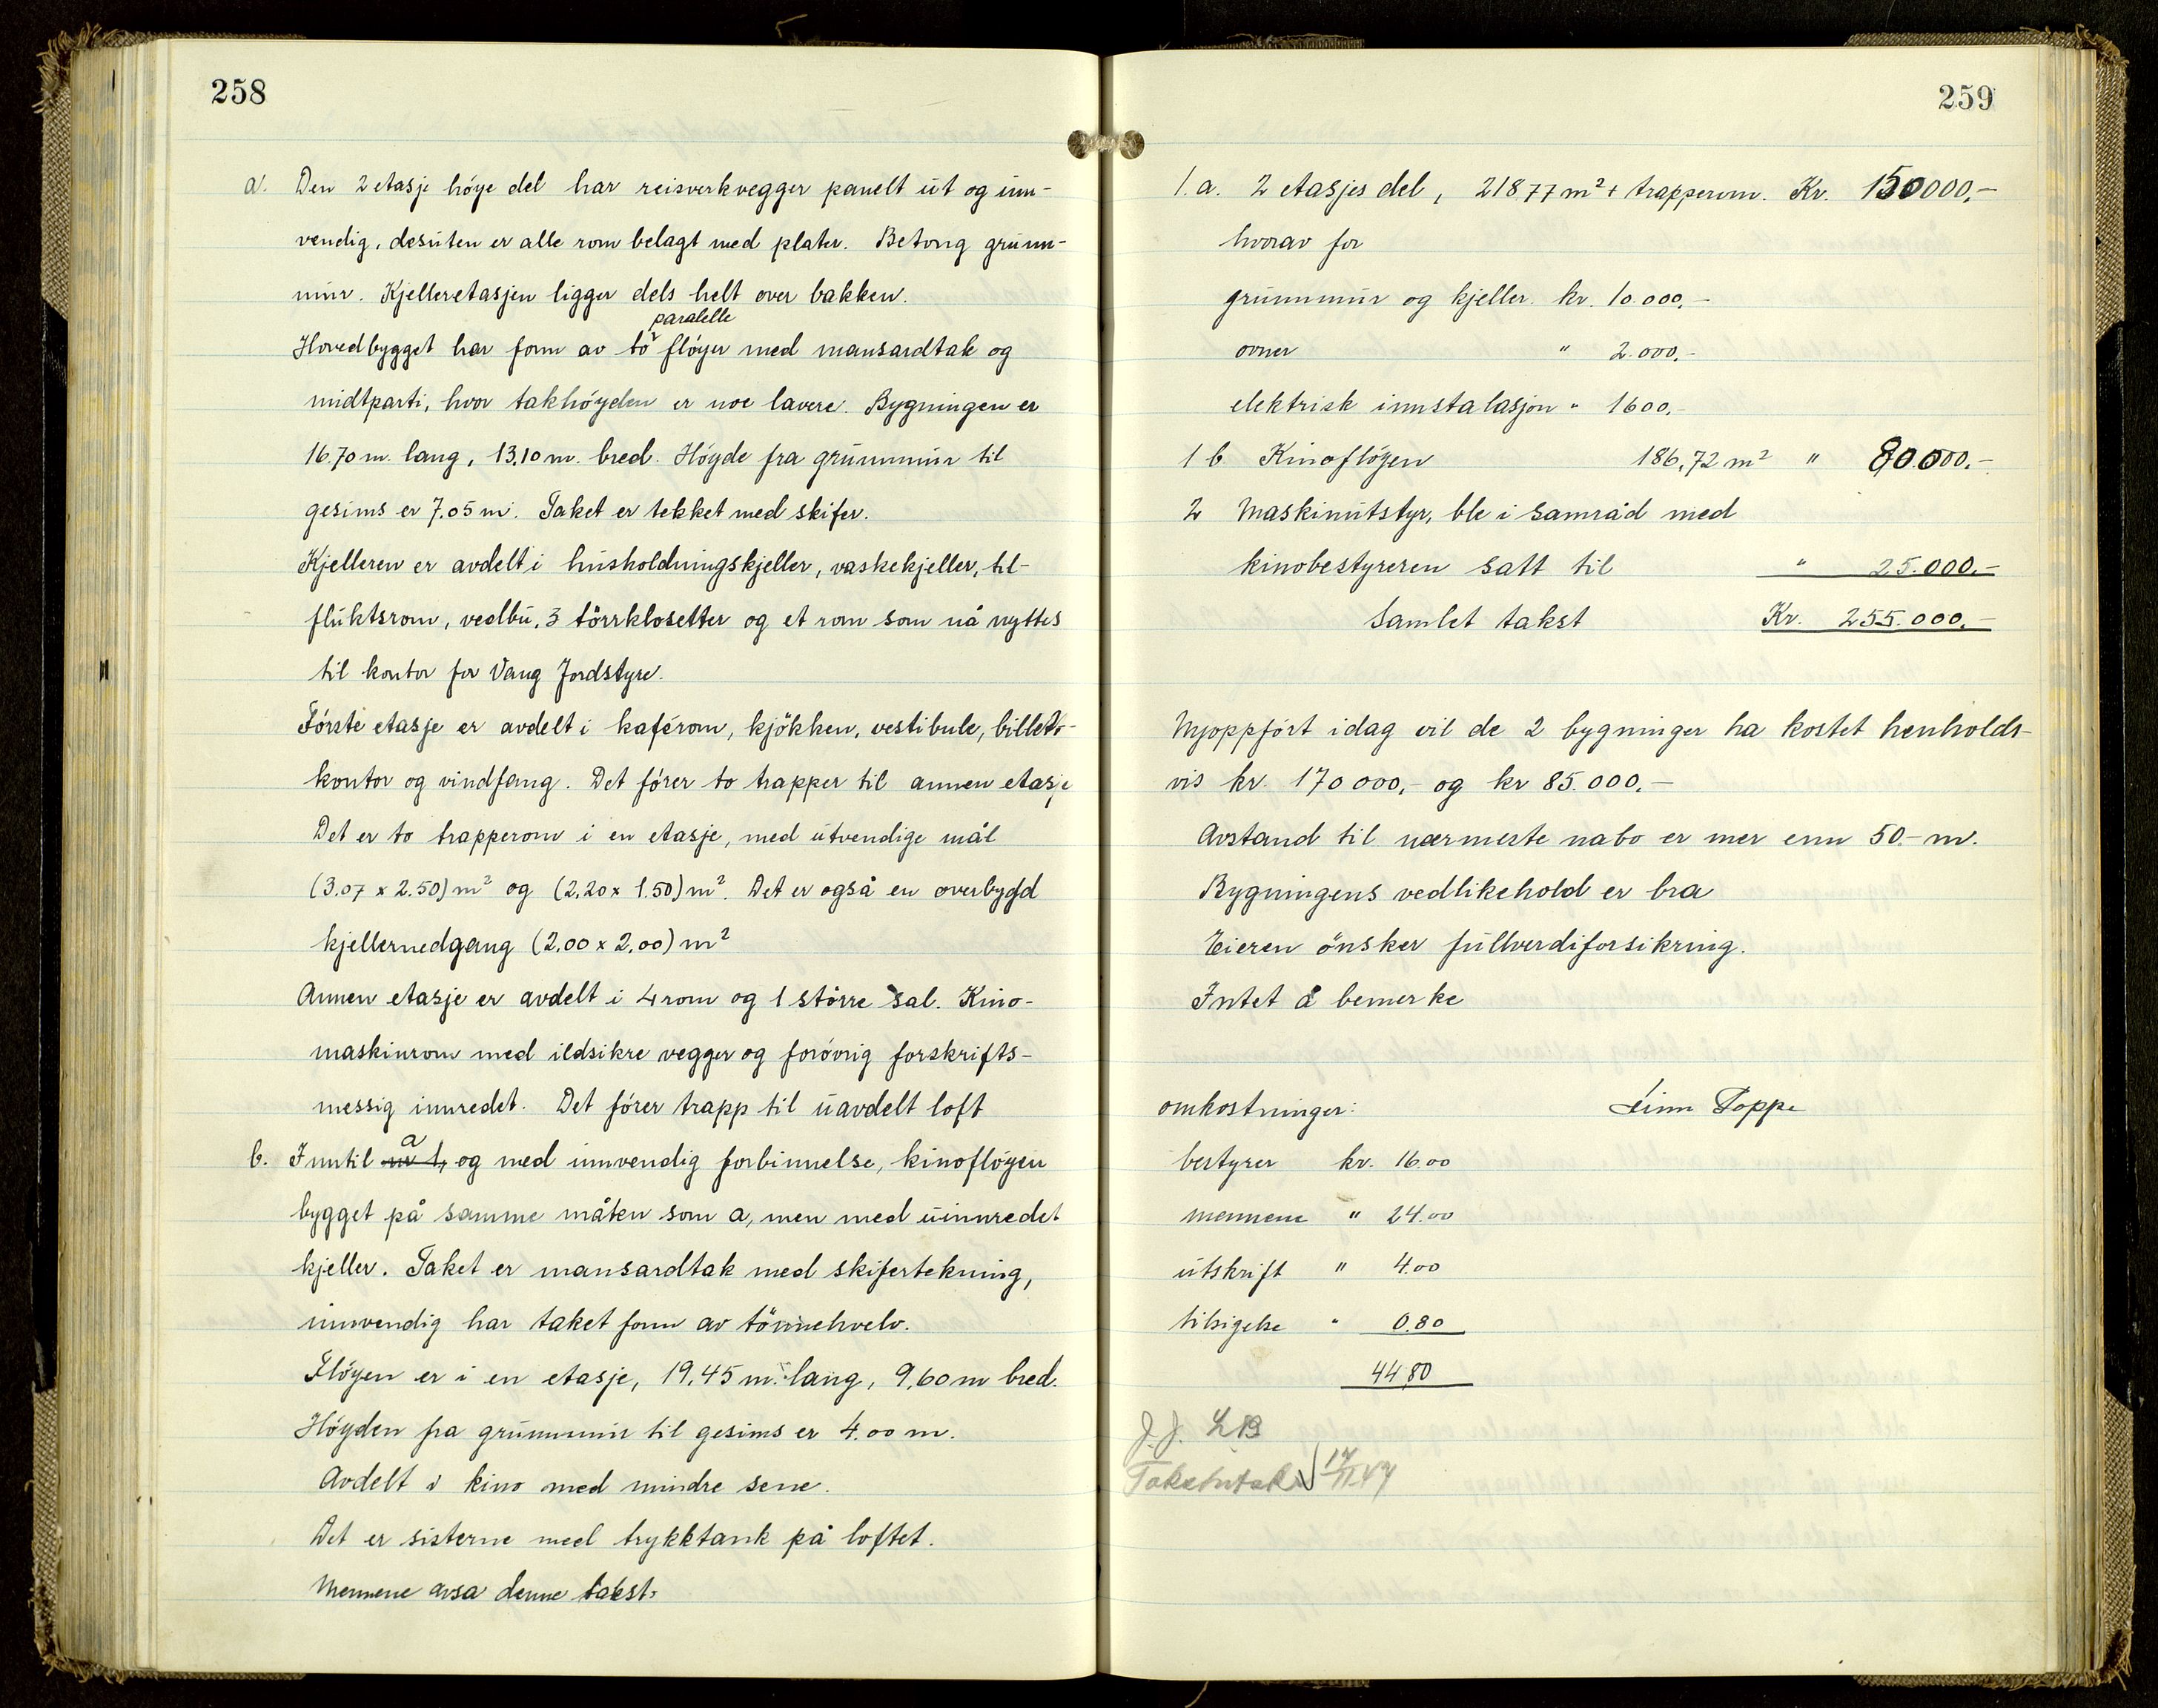 258
a. Den 2 etasje höye del har reisverkvegger panelt ut og inn-
vendig, desuten er alle rom belagt med plater. Betong grunn-
mur. Kjelleretasjen ligger dels helt over bakken.
paralelle
Hovedbygget har form av to flöyer med mansardtak og
midtparti, hvor takhöyden er noe lavere. Bygningen er
16,70 m. lang, 13,10 m. bred. Höyde fra grunnmur til
gesims er 7.05 m. Taket er tekket med skifer.
Kjelleren er avdelt i husholdningskjeller, vaskekjeller, til-
fluktsrom, vedbu, 3 törrklosetter og et rom som nå nyttes
til kontor for Vang Jordstyre.
Förste etasje er avdelt i kaférom, kjökken, vestibule, billett-
kontor og vindfang. Det förer to trapper til annen etasje
Det er to trapperom i en etasje, med utvendige mål
(3.07 x 2.50) m² og (2,20 x 1.50) m². Det er også en overbygd
kjellernedgang (2.00 x 2,00) m²
Annen etasje er avdelt i 4 rom og 1 större sal. Kino-
maskinrom med ildsikre vegger og forövrig forskrifts-
messig innredet. Det förer trapp til uavdelt loft
a
b. Inntil nr 1, og med innvendig forbinnelse, kinoflöyen
bygget på samme måten som a, men med uinnredet
kjeller. Taket er mansardtak med skifertekning,
innvendig har taket form av tönnehvelv.
Flöyen er i en etasje, 19,45 m. lang, 9,60 m bred.
Höyden fra grunnmur til gesims er 4.00 m.
Avdelt i kino med mindre sene.
Det er sisterne med trykktank på loftet.
Mennene avsa denne takst:
259
1. a. 2 etasjes del, 218,77 m² + trapperom. Kr. 150000,-
hvorav for
grunnmur og kjeller kr. 10.000,-
ovner " 2.000,-
elektrisk innstalasjon " 1600,-
1 b Kinoflöyen 186,72 m² " 80.000,-
2 Maskinutstyr, ble i samråd med
kinobestyreren satt til " 25.000.-
Samlet takst Kr. 255.000.-
Nyoppfört idag vil de 2 bygninger ha kostet henholds-
vis kr. 170 000,- og kr 85.000,-
Avstand til nærmeste nabo er mer enn 50.- m.
Bygningens vedlikehold er bra
Eieren önsker fullverdiforsikring.
Intet å bemerke
omkostninger: Finn Toppe
bestyrer kr. 16.00
mennene " 24.00
utskrift " 4.00
tilsigelse " 0.80
44,80
J. J. LB
17/11.47